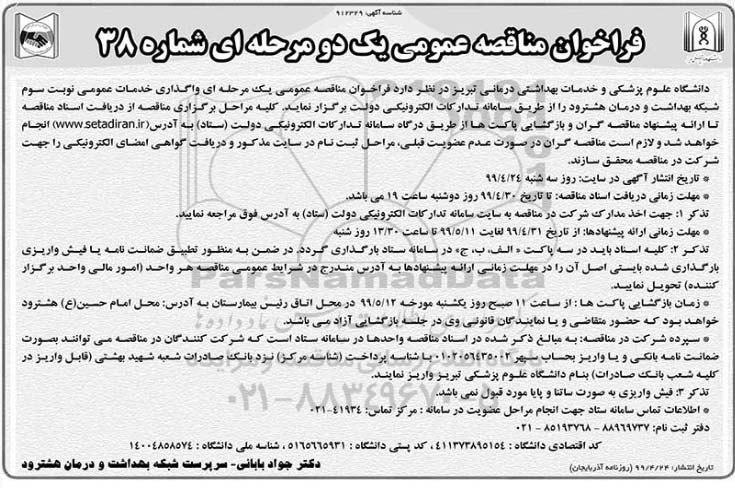 شناسه آگهی: ۹۱۲۳۲۹
فراخوان مناقصه عمومی یک دو مرحله ای شماره ۳۸
دانشگاه علوم پزشکی و خدمات بهداشتی درمانی تبریز در نظر دارد فراخوان مناقصه عمومی یک مرحله ای واگذاری خدمات عمومی نوبت سوم
شبکه بهداشت و درمان هشترود را از طریق سامانه تدارکات الکترونیکی دولت برگزار نماید. کلیه مراحل برگزاری مناقصه از دریافت اسناد مناقصه
تا ارائه پیشنهاد مناقصه گران و بازگشایی پاکت ها از طریق درگاه سامانه تدارکات الکترونیکی دولت (ستاد) به آدرس(www.setadiran.ir) انجام
خواهد شد و لازم است مناقصه گران در صورت عدم عضویت قبلی، مراحل ثبت نام در سایت مذکور و دریافت گواهی امضای الکترونیکی را جهت
شرکت در مناقصه محقق سازند.
* تاریخ انتشار آگهی در سایت: روز سه شنبه ۹۹/۴/۲۴
* مهلت زمانی دریافت اسناد مناقصه: تا تاریخ ۹۹/۴/۳۰ روز دوشنبه ساعت ۱۹ می باشد.
تذکر ۱: جهت اخذ مدارک شرکت در مناقصه به سایت سامانه تدارکات الکترونیکی دولت (ستاد) به آدرس فوق مراجعه نمایید.
* مهلت زمانی ارائه پیشنهادها: از تاریخ ۹۹/۴/۳۱ لغایت ۹۹/۵/۱۱ تا ساعت ۱۳/۳۰ روز شنبه
تذکر ۲: کلیه اسناد باید در سه پاکت « الف، ب، ج» در سامانه ستاد بارگذاری گردد. در ضمن به منظور تطبیق ضمانت نامه یا فیش واریزی
بارگذاری شده بایستی اصل آن را در مهلت زمانی ارائه پیشنهادها به آدرس مندرج در شرایط عمومی مناقصه هر واحد (امور مالی واحد برگزار
کننده) تحویل نمایید.
* زمان بازگشایی پاکت ها : از ساعت ۱۱ صبح روز یکشنبه مورخه ۹۹/۵/۱۲ در محل اتاق رئیس بیمارستان به آدرس: محل امام حسین(ع) هشترود
خواهد بود که حضور متقاضی و یا نمایندگان قانونی وی در جلسه بازگشایی آزاد می باشد.
* سپرده شرکت در مناقصه: به مبالغ ذکر شده در اسناد مناقصه واحدها در سامانه ستاد است که شرکت کنندگان در مناقصه می توانند بصورت
ضمانت نامه بانکی و یا واریز بحساب سپهر ۰۱۰۲۰۵۶۴۳۵۰۰۲ با شناسه پرداخت (شناسه مرکز) نزد بانک صادرات شعبه شهید بهشتی (قابل واریز در
کلیه شعب بانک صادرات) بنام دانشگاه علوم پزشکی تبریز واریز نمایند.
تذکر ۳: فیش واریزی به صورت ساتنا و پایا مورد قبول نمی باشد.
* اطلاعات تماس سامانه ستاد جهت انجام مراحل عضویت در سامانه : مرکز تماس: ۴۱۹۳۴-۰۲۱
دفتر ثبت نام: ۸۸۹۶۹۷۳۷ - ۸۵۱۹۳۷۶۸ - ۰۲۱
کد اقتصادی دانشگاه : ۴۱۱۳۷۳۸۹۵۱۵۴ ، کد پستی دانشگاه : ۵۱۶۵۶۶۵۹۳۱ ، شناسه ملی دانشگاه : ۱۴۰۰۴۸۵۸۵۷۴
دکتر جواد بابائی- سرپرست شبکه بهداشت و درمان هشترود
تاریخ انتشار: ۹۹/۴/۲۴ (روزنامه آذربایجان)
ParsNamadData
۰۲۱-۸۸۳۴۹۶۷۰-۵